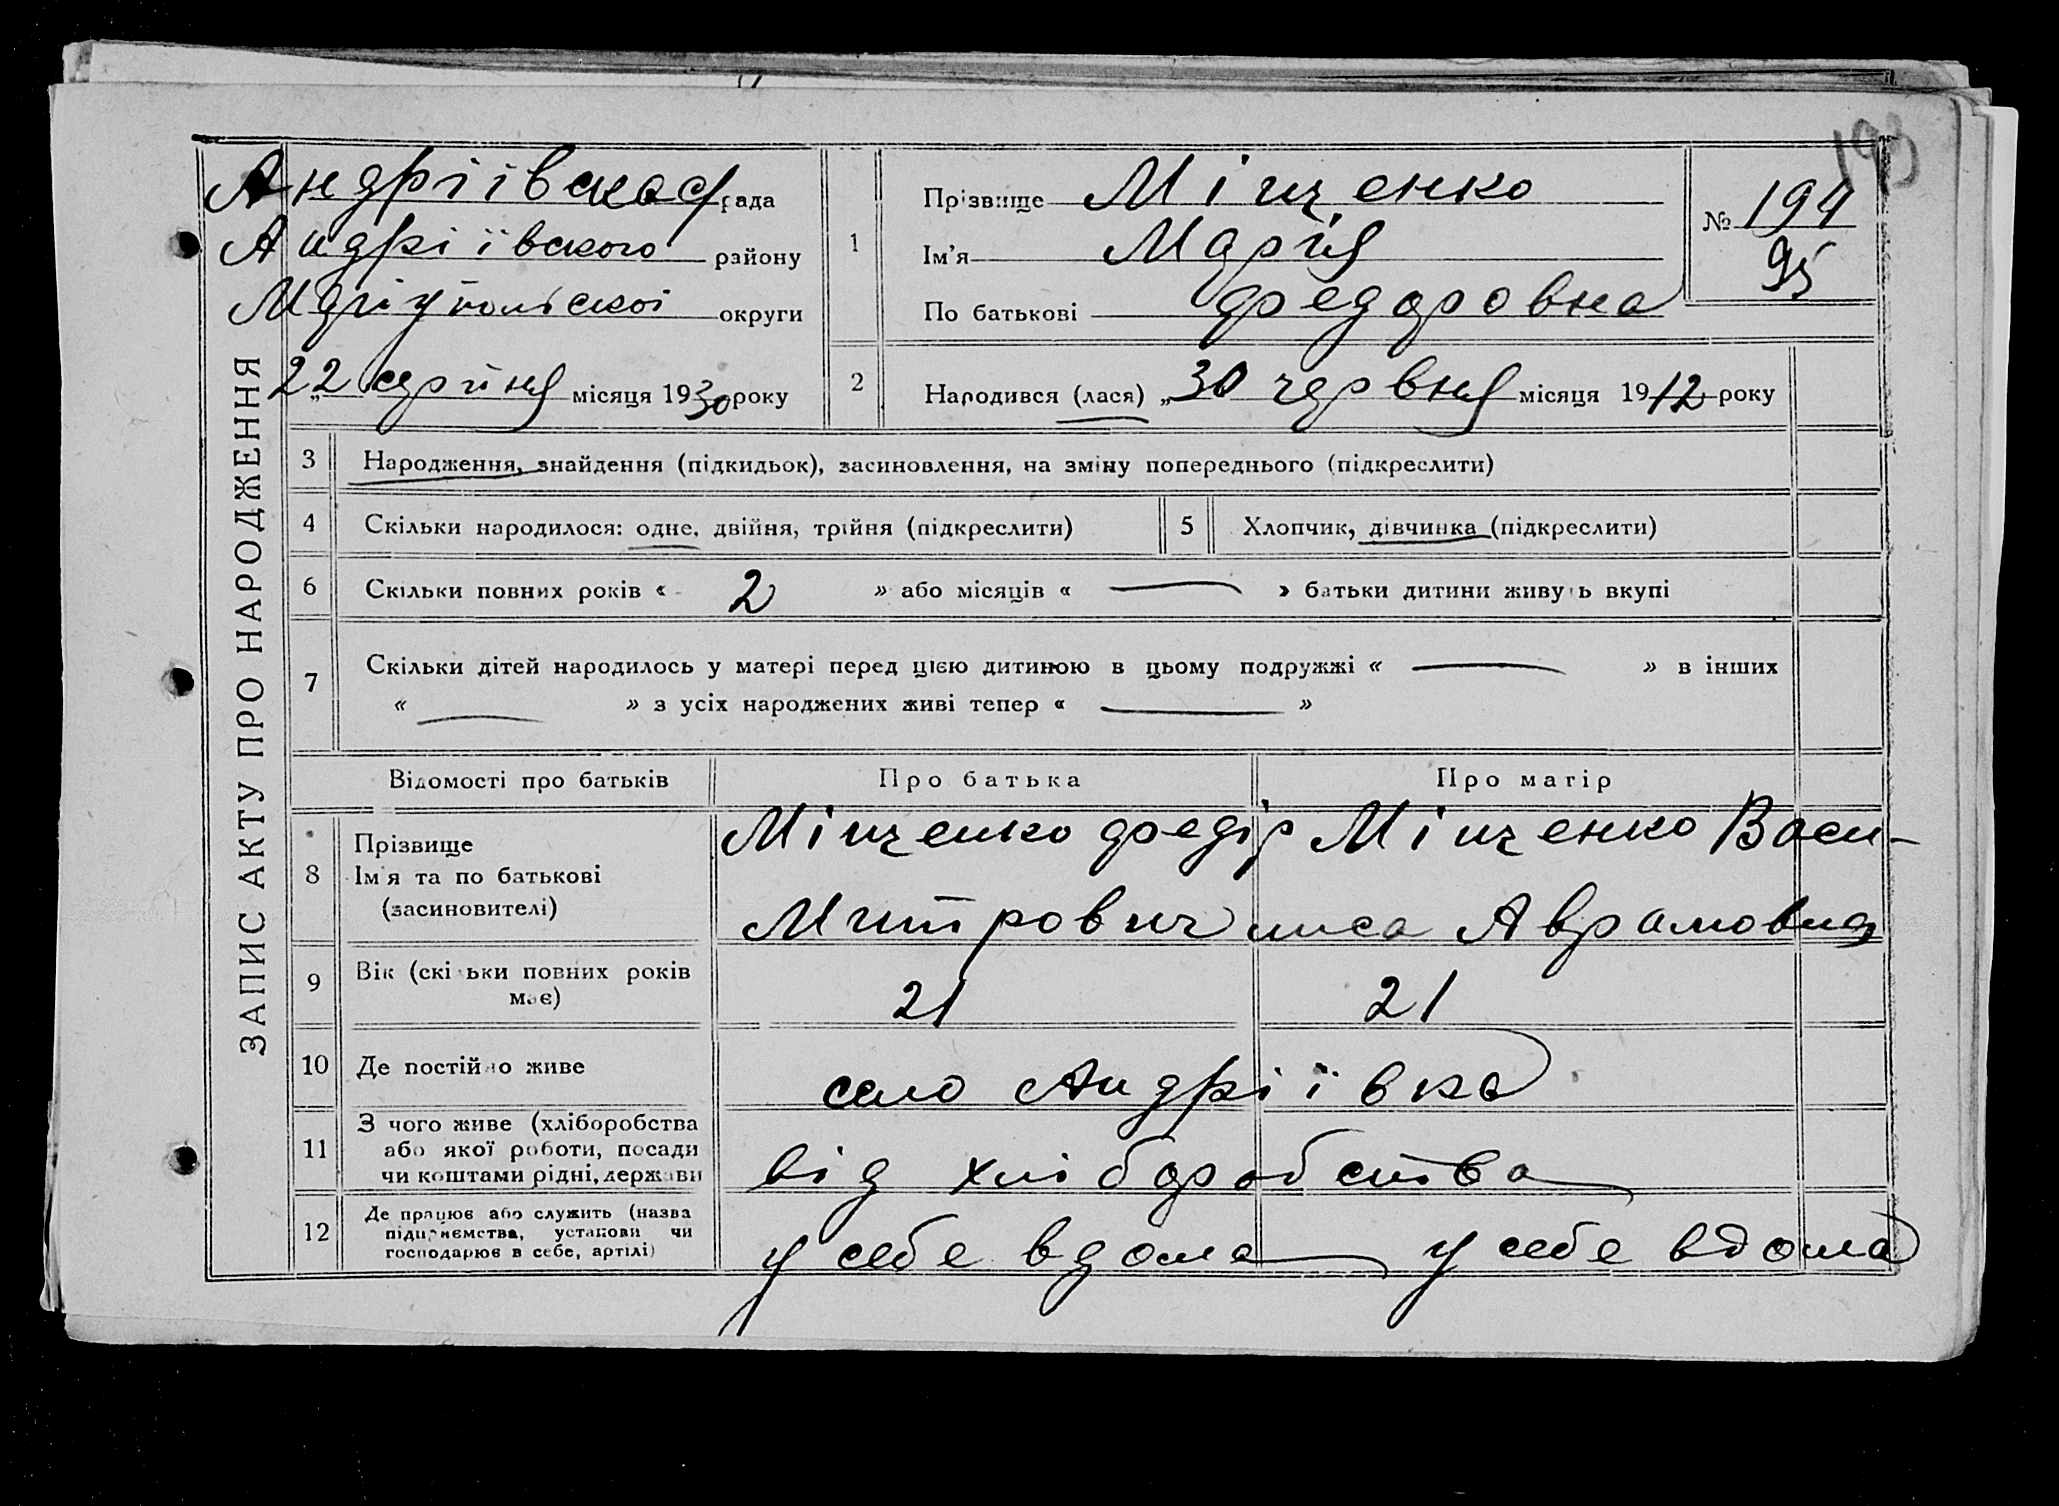 193
Андріївская рада
Андріївского району
Маріупольскої округи
„22 серпня місяця 1930 року
ЗАПИС АКТУ ПРО НАРОДЖЕННЯ
1
Прізвище Міщенко
Ім'я Марія
По батькові Федоровна
№ 194
95
2 Народився (лася) „30 червня місяця 1912 року
3 Народження, знайдення (підкидьок), засиновлення, на зміну попереднього (підкреслити)
4 Скільки народилося: одне, двійня, трійня (підкреслити) 5 Хлопчик, дівчинка (підкреслити)
6 Скільки повних років « 2 » або місяців « — » батьки дитини живуть вкупі
7 Скільки дітей народилось у матері перед цією дитиною в цьому подружжі « — » в інших
« — » з усіх народжених живі тепер « — »
Відомості про батьків Про батька Про матір
8 Прізвище
Ім'я та по батькові
(засиновителі)
Міщенко Федір
Митрович
Міщенко Васи-
лиса Аврамовна
9 Вік (скільки повних років
має)
21 21
10 Де постійно живе село Андріївка
11 З чого живе (хліборобства
або якої роботи, посади
чи коштами рідні, держави
від хліборобства
12 Де працює або служить (назва
підприємства, установи чи
господарює в себе, артілі)
у себе вдома у себе вдома